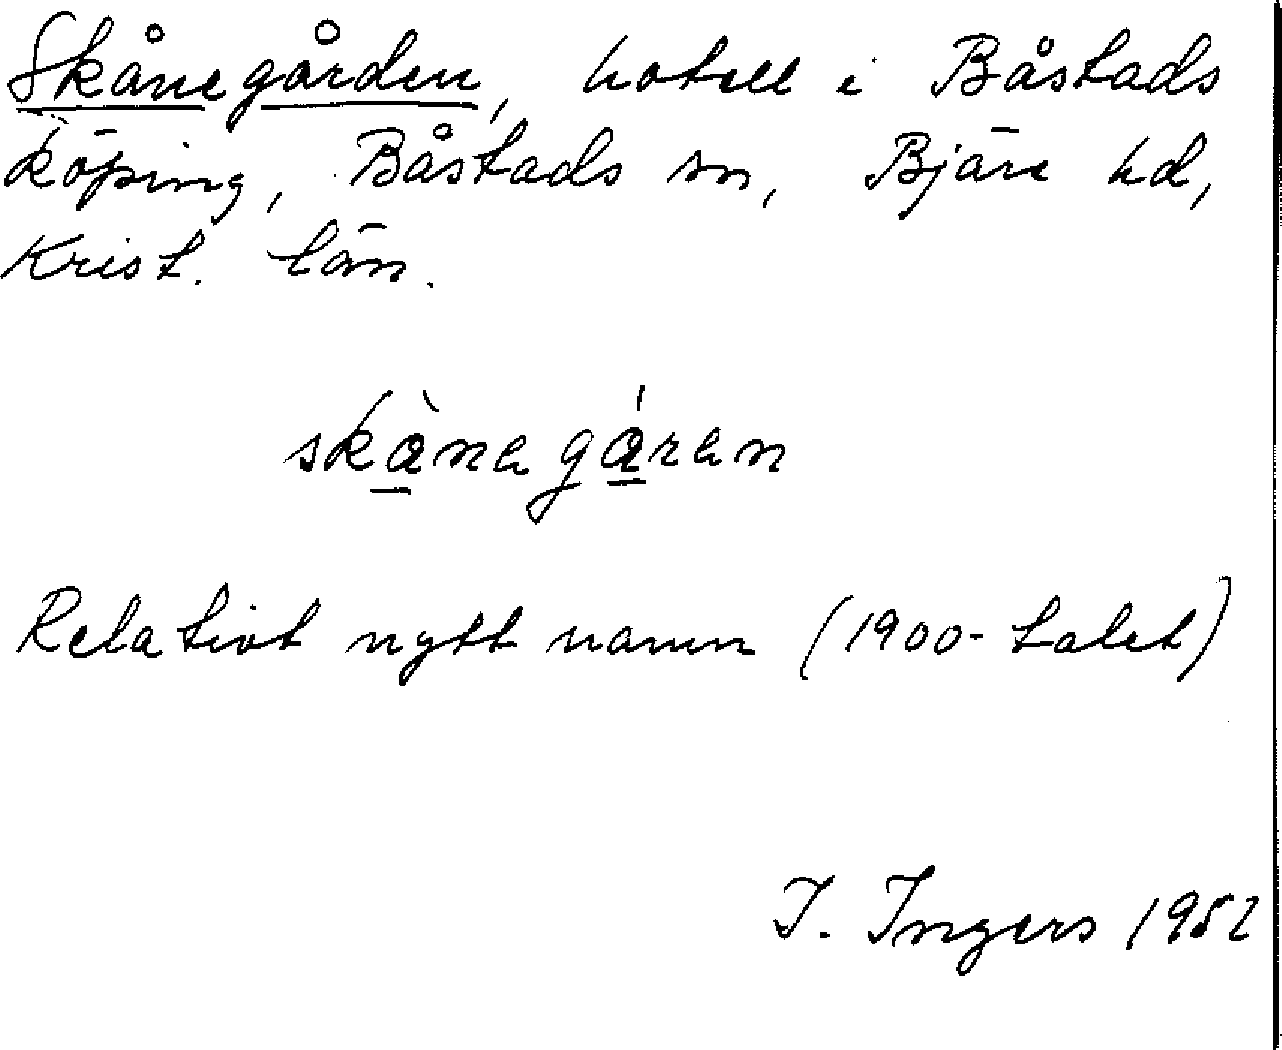 Skånegården, hotell i Båstads
köping, Båstads sn, Bjäre hd,
Krist. län.
skånagåran
Relativt nytt namn (1900-talet)
I. Ingers 1952